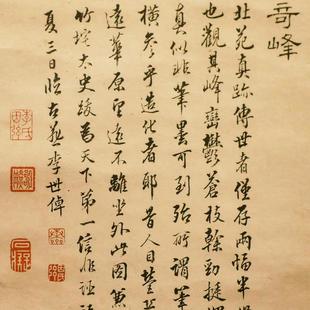 奇峰
北苑真跡傳世者僅存兩幅半
也觀其峰巒鬱蒼枝幹勁挺
真似非筆墨可到殆所謂筆
橫參乎造化者耶昔人目
遠華原望遠不離坐外此圖兼
竹垞太史跋為天下第一信非誣
夏三日臨古并 李世倬